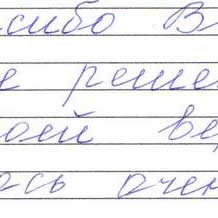 сибо В
е реше
оей ве
ась очен